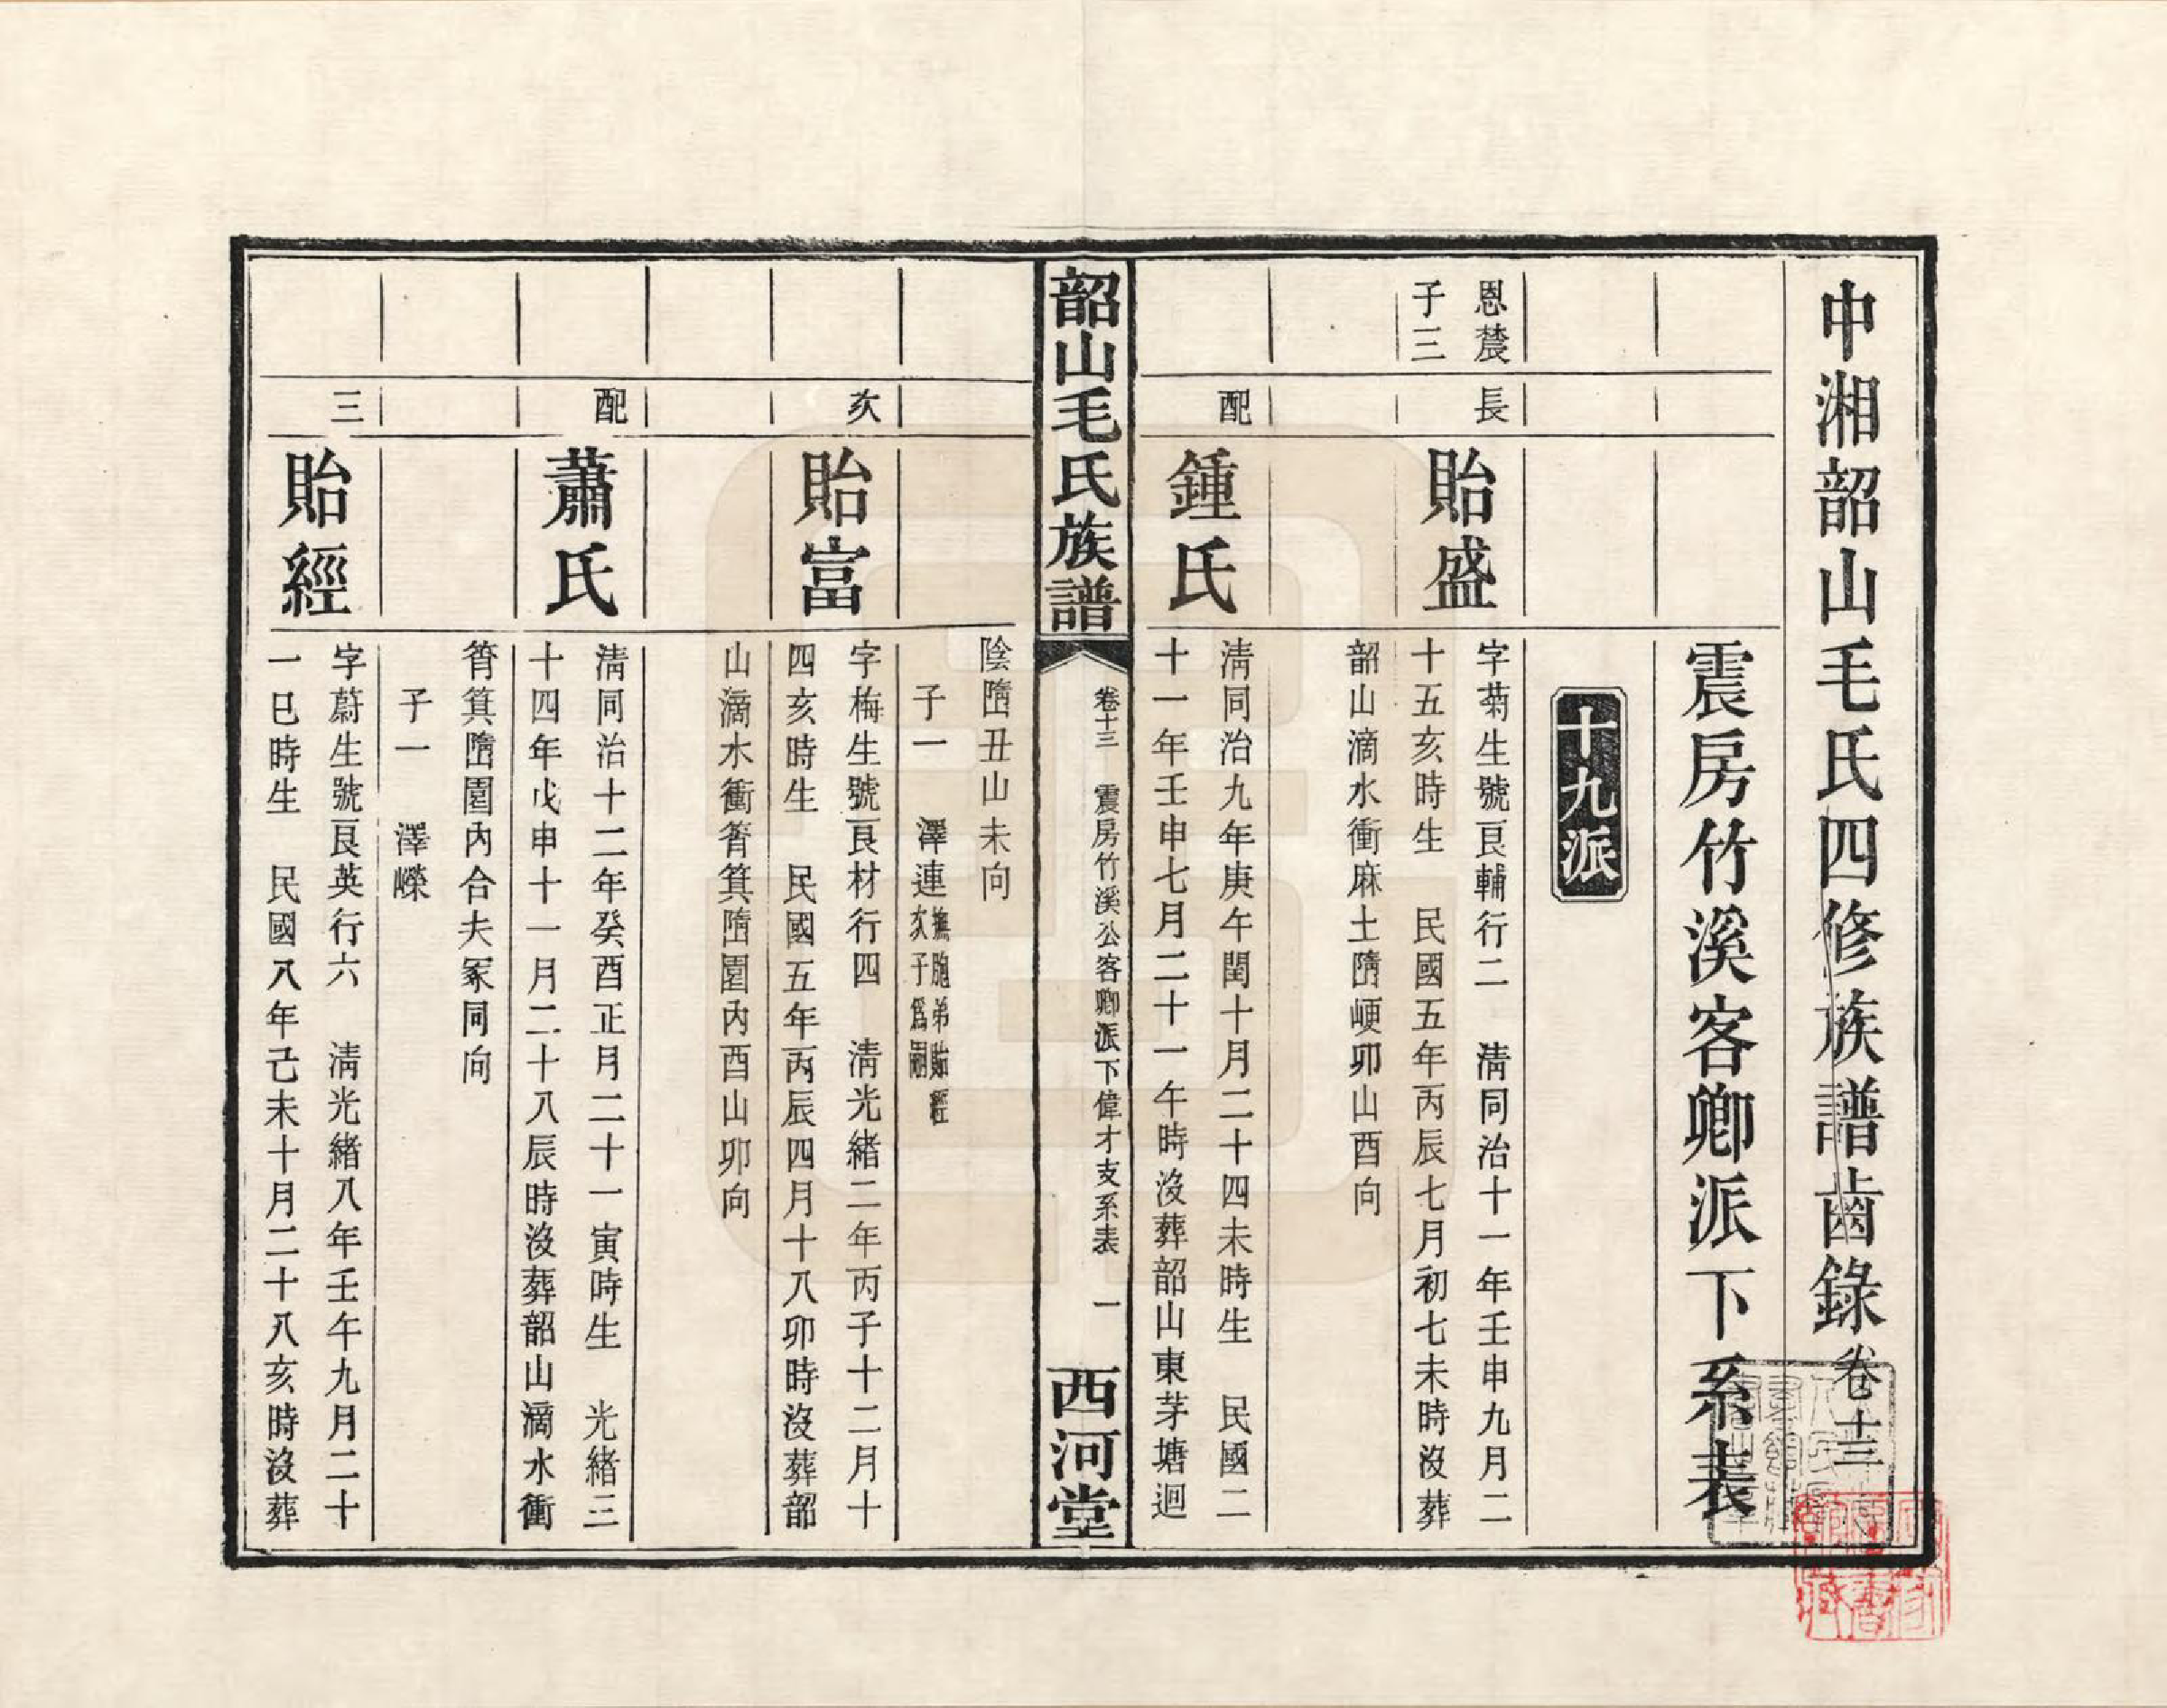 中湘韶山毛氏四修族譜齒錄卷十三
震房竹溪客卿派下系表
十九派
恩農
子三
長
貽盛
字菊生號良輔行二　清同治十一年壬申九月二
十五亥時生　民國五年丙辰七月初七未時沒葬
韶山滴水衝麻土墮峺卯山酉向
配
鍾氏
清同治九年庚午閏十月二十四未時生　民國二
十一年壬申七月二十一午時沒葬韶山東茅塘迴
韶山毛氏族譜
卷十三　震房竹溪公客卿派下偉才支系表　一
西河堂
陰墮丑山未向
子一　澤連
撫胞弟貽經
次子爲嗣
次
貽富
字梅生號良材行四　清光緒二年丙子十二月十
四亥時生　民國五年丙辰四月十八卯時沒葬韶
山滴水衝筲箕墮園內酉山卯向
配
蕭氏
清同治十二年癸酉正月二十一寅時生　光緒三
十四年戊申十一月二十八辰時沒葬韶山滴水衝
筲箕墮園內合夫冢同向
子一　澤嶸
三
貽經
字蔚生號良英行六　清光緒八年壬午九月二十
一巳時生　民國八年己未十月二十八亥時沒葬